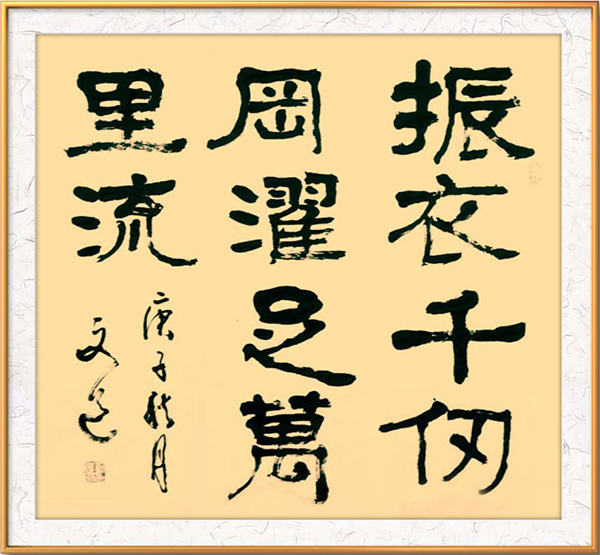 振衣千仞
岡濯足萬
里流
庚子秋月
文道